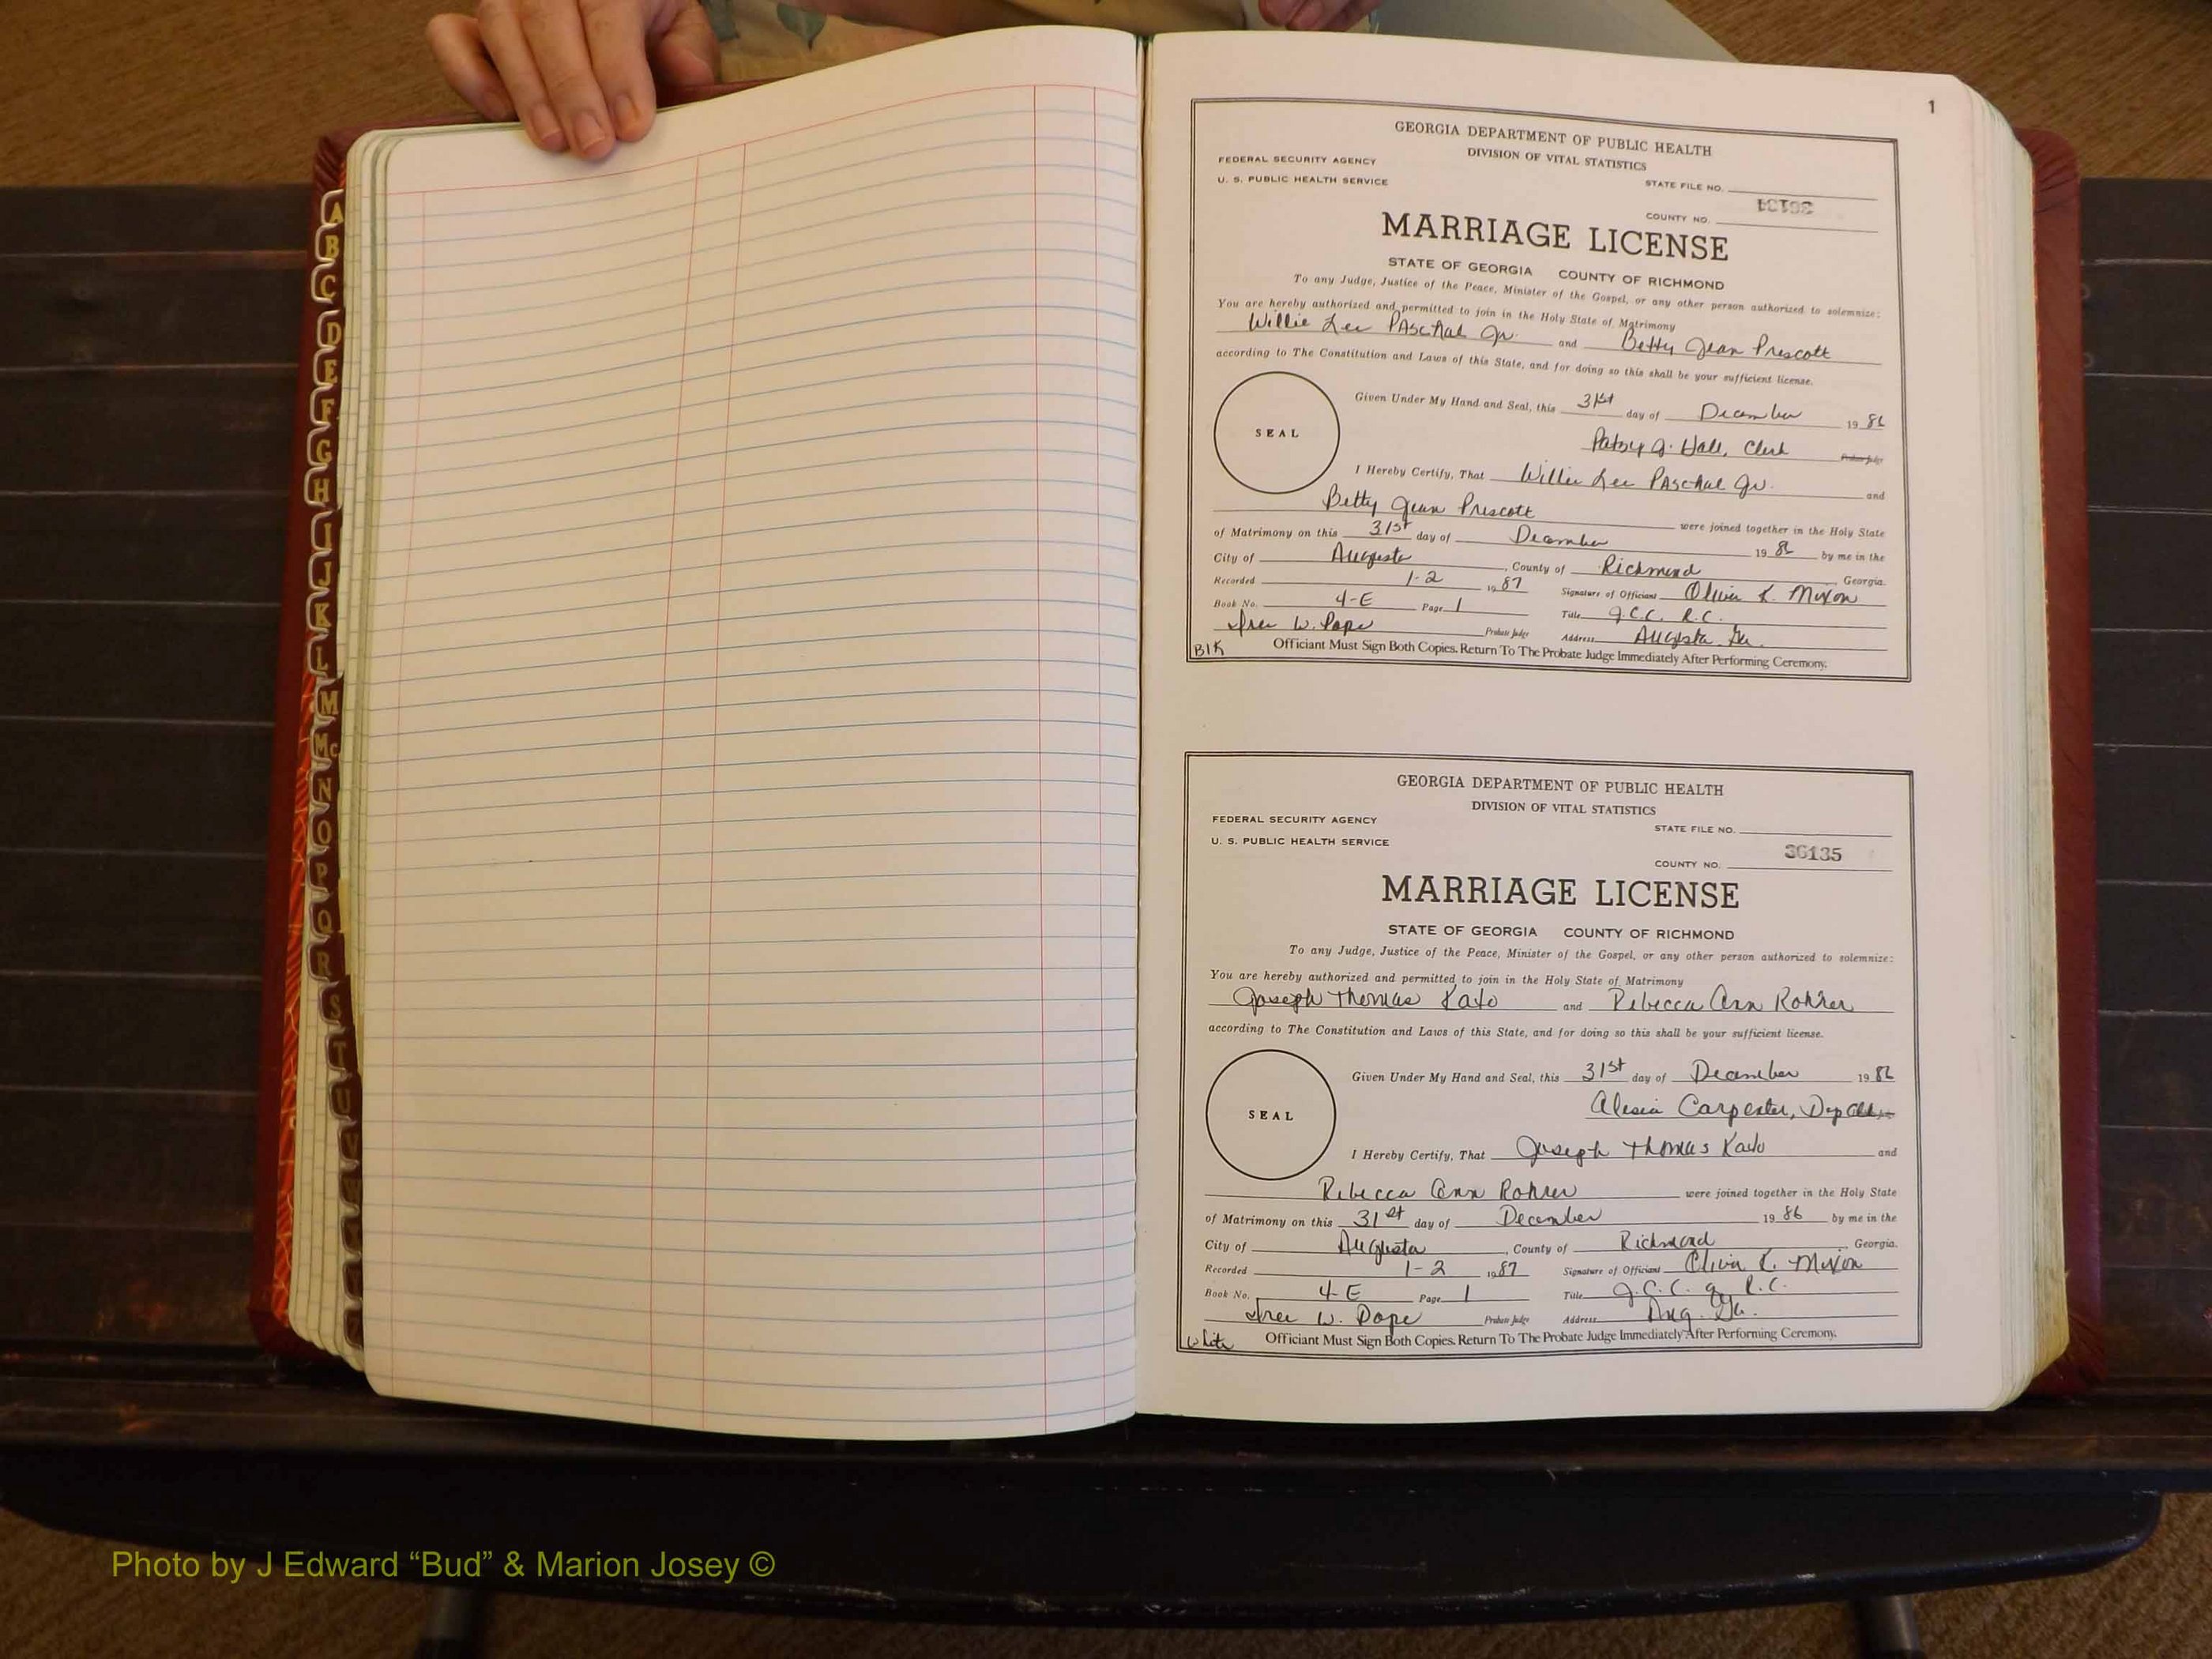 A
B
C
D
E
F
G
H
I
J
K
L
M
Mc
N
O
P
Q
R
S
T
U
V
1
GEORGIA DEPARTMENT OF PUBLIC HEALTH
DIVISION OF VITAL STATISTICS
FEDERAL SECURITY AGENCY
U. S. PUBLIC HEALTH SERVICE
STATE FILE NO.
36134
COUNTY NO.
MARRIAGE LICENSE
STATE OF GEORGIA COUNTY OF RICHMOND
To any Judge, Justice of the Peace, Minister of the Gospel, or any other person authorized to solemnize:
You are hereby authorized and permitted to join in the Holy State of Matrimony
Willie Lee PAschal Jr. and Betty Jean Prescott
according to The Constitution and Laws of this State, and for doing so this shall be your sufficient license.
Given Under My Hand and Seal, this 31st day of December 1986
SEAL
Patsy J. Hall, Clerk Probate Judge
I Hereby Certify, That Willie Lee PAschal Jr. and
Betty Jean Prescott were joined together in the Holy State
of Matrimony on this 31st day of December 1986 by me in the
City of Augusta, County of Richmond Georgia.
Recorded 1-2 1987 Signature of Officiant Oliver K. Mixon
Book No. 4-E Page 1 Title J.C.C. R.C.
W. Pope Probate Judge Address Augusta, Ga.
Blk Officiant Must Sign Both Copies. Return To The Probate Judge Immediately After Performing Ceremony.
GEORGIA DEPARTMENT OF PUBLIC HEALTH
DIVISION OF VITAL STATISTICS
FEDERAL SECURITY AGENCY
U. S. PUBLIC HEALTH SERVICE
STATE FILE NO.
36135
COUNTY NO.
MARRIAGE LICENSE
STATE OF GEORGIA COUNTY OF RICHMOND
To any Judge, Justice of the Peace, Minister of the Gospel, or any other person authorized to solemnize:
You are hereby authorized and permitted to join in the Holy State of Matrimony
Joseph Thomas and Rebecca Ann Rohrer
according to The Constitution and Laws of this State, and for doing so this shall be your sufficient license.
Given Under My Hand and Seal, this 31st day of December 1986
SEAL
Alesia Carpenter, Dep Clk
I Hereby Certify, That Joseph Thomas and
Rebecca Ann Rohrer were joined together in the Holy State
of Matrimony on this 31st day of December 1986 by me in the
City of Augusta, County of Richmond Georgia.
Recorded 1-2 1987 Signature of Officiant Oliver K. Mixon
Book No. 4-E Page 1 Title J.C.C. of R.C.
W. Pope Probate Judge Address Aug. Ga.
White Officiant Must Sign Both Copies. Return To The Probate Judge Immediately After Performing Ceremony.
Photo by J Edward “Bud” & Marion Josey ©